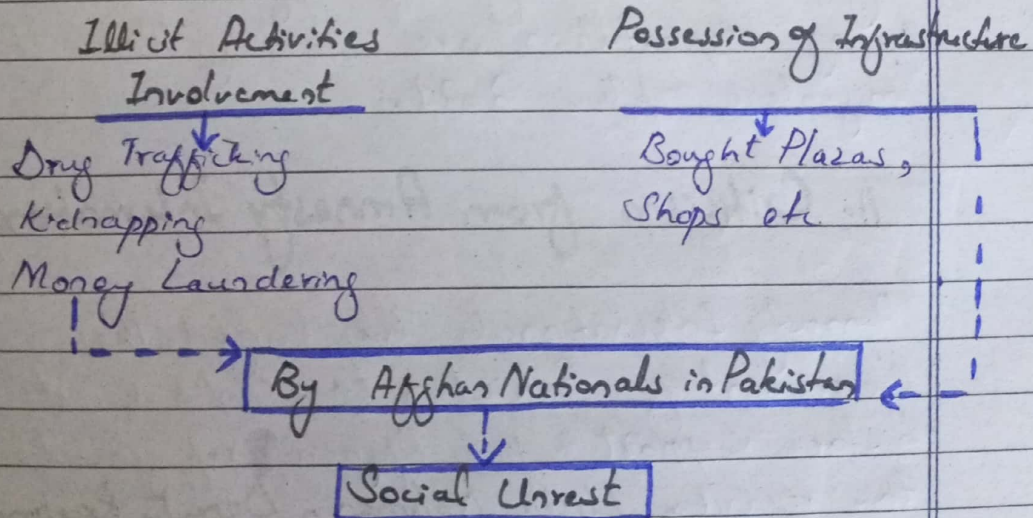 Illicit Activities
Involvement
Drug Trafficking
Kidnapping
Money Laundering
Possession of Infrastructure
Bought Plazas,
Shops etc
By Afghan Nationals in Pakistan
Social Unrest